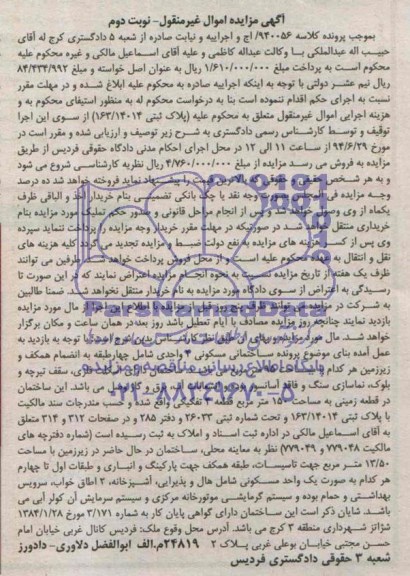 آگهی مزایده اموال غیرمنقول- نوبت دوم
بموجب پرونده کلاسه ۹۴۰۰۵۶/ اج و اجراییه و نیابت صادره از شعبه ۵ دادگستری کرج له آقای
حبیب اله عبدالملکی با وکالت عبداله کاظمی و علیه آقای اسماعیل مالکی و غیره محکوم علیه
محکوم است به پرداخت مبلغ ۱/۶۱۰/۰۰۰/۰۰۰ ریال به عنوان اصل خواسته و مبلغ ۸۴/۴۳۴/۹۹۲
ریال نیم عشر دولتی با توجه به اینکه اجراییه صادره به محکوم علیه ابلاغ شده و در مهلت مقرر
نسبت به اجرای حکم اقدام ننموده است بنا به درخواست محکوم له به منظور استیفای محکوم به و
هزینه اجرایی اموال غیرمنقول متعلق به محکوم علیه (پلاک ثبتی ۱۶۳/۱۴۰۱۴) از سوی این اجرا
توقیف و توسط کارشناس رسمی دادگستری به شرح زیر توصیف و ارزیابی شده و مقرر است در
۹۴/۶/۲۹ از ساعت ۱۱ الی ۱۲ در محل اجرای احکام مدنی دادگاه حقوقی فردیس از طریق
مزایده به فروش می رسد مزایده از مبلغ ۴/۷۶۰/۰۰۰/۰۰۰ ریال نظریه کارشناسی شروع می شود
و به هر شخص حقیقی و حقوقی که بالاترین قیمت را پیشنهاد نماید فروخته خواهد شد ده درصد
وجه مزایده فی المجلس وجه نقد یا چک بانکی تضمینی بنام خریدار اخذ و الباقی ظرف
یکماه از وی وصول خواهد شد و پس از انجام مراحل قانونی و صدور حکم تملیک مورد مزایده بنام
خریداری منتقل خواهد شد در صورتیکه در مهلت مقرر خریدار وجه مزایده را پرداخت ننماید سپرده
وی پس از کسر هزینه های مزایده به نفع دولت ضبط و مزایده تجدید می گردد کلیه هزینه های
نقل و انتقال به عهده محکوم علیه است و از محل فروش پرداخت خواهد شد طرفین می توانند
ظرف یک هفته از تاریخ مزایده نسبت به نحوه انجام مزایده اعتراض نمایند که در این صورت تا
رسیدگی به اعتراض از سوی دادگاه مورد مزایده به نام خریدار منتقل نخواهد شد. ضمنا طالبین
به شرکت در مزایده می توانند ظرف پنج روز قبل از مزایده با اطلاع این اجرا از مال مورد مزایده
بازدید نمایند چنانچه روز مزایده مصادف با ایام تعطیل باشد روز بعد در همان ساعت و مکان برگزار
خواهد شد. با توجه به بازدید به
عمل آمده بنای موضوع پرونده ساختمانی مسکونی ۴ واحدی شامل چهار طبقه به انضمام همکف و
زیرزمین هر کدام سقف تیرچه و
بلوک، نماسازی سنگ و فاقد آسانسور می باشد. این ساختمان
در قطعه زمینی به مساحت ۱۵۰ متر مربع قطعه تفکیکی واقع شده و حسب مندرجات سند مالکیت
با پلاک ثبتی ۱۶۳/۱۴۰۱۴ و تحت شماره ثبتی ۲۶۰۳۳ و دفتر ۲۸۵ و در صفحات ۳۱۲ و ۳۱۴ متعلق
به آقای اسماعیل مالکی در اداره ثبت اسناد و املاک به ثبت رسیده است (شماره دفترچه های
مالکیت ۷۷۹۰۴۸ و ۷۷۹۰۴۹) نظر به معاینه محلی، ساختمان در حال حاضر در زیرزمین با مساحت
۱۳/۵۰ متر مربع جهت تاسیسات، طبقه همکف جهت پارکینگ و انباری و طبقات اول تا چهارم
هر کدام به صورت یک واحد مسکونی شامل هال و پذیرایی، آشپزخانه، ۲ اطاق خواب، سرویس
بهداشتی و حمام بوده و سیستم گرمایشی موتورخانه مرکزی و سیستم سرمایش آن کولر آبی می
باشد. شایان ذکر است این ساختمان دارای گواهی پایان کار به شماره ۳/۱۷۱ مورخ ۱۳۸۴/۱/۲۸
شژانژ شهرداری منطقه ۳ کرج می باشد. آدرس محل وقوع ملک: فردیس کانال غربی خیابان امام
حسن مجتبی خیابان بوعلی غربی پلاک ۲ ۲۴۸۱۹/م.الف ابوالفضل دلاوری- دادورز
شعبه ۳ حقوقی دادگستری فردیس
ParsNamadData
پایگاه اطلاع رسانی مناقصه و مزایده
۰۲۱-۸۸۳۴۹۶۷۰-۵